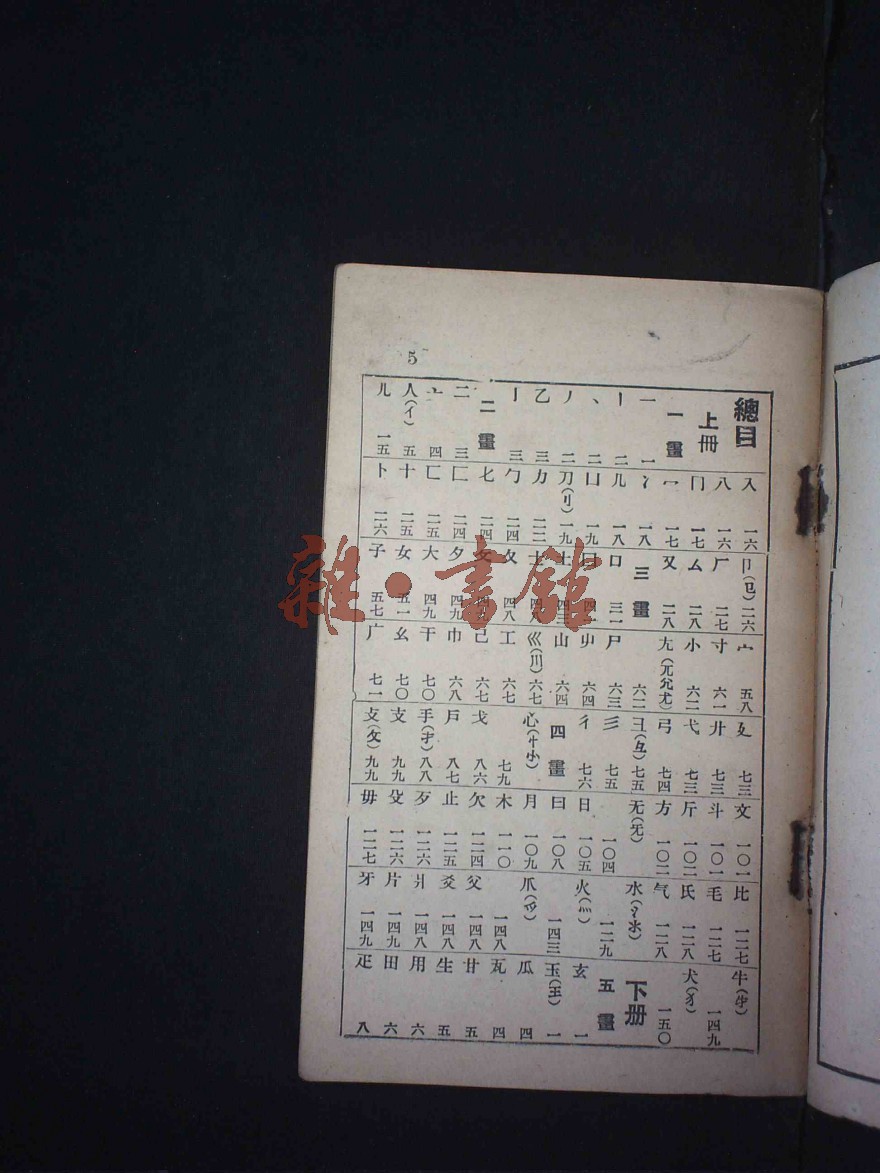 5
總目
上冊
一畫
一 一
丨 二
丶 二
丿 二
乙 三
亅 三
二畫
二 三
亠 四
人(亻) 五
儿 一五
入 一六
八 一六
冂 一七
冖 一七
冫 一八
几 一八
凵 一九
刀(刂) 一九
力 二二
勹 二四
匕 二四
匚 二四
匸 二五
十 二五
卜 二六
卩(㔾) 二六
厂 二七
厶 二八
又 二八
三畫
口 三一
囗
土
士 四八
夂 四八
夊 四九
夕 四九
大 四九
女 五一
子 五七
宀 五八
寸 六一
小 六二
尢(兀尣尤) 六二
尸 六三
屮 六四
山 六四
巛(川) 六七
工 六七
己 六七
巾 六八
干 七〇
幺 七〇
广 七一
廴 七三
廾 七三
弋 七三
弓 七四
彐(彑) 七五
彡 七五
彳 七六
四畫
心(忄㣺) 七九
戈 八六
戶 八七
手(扌) 八八
支 九九
攴(攵) 九九
文 一〇一
斗 一〇一
斤 一〇二
方 一〇二
无(旡) 一〇四
日 一〇五
曰 一〇八
月 一〇九
木 一一〇
欠 一二四
止 一二五
歹 一二六
殳 一二六
毋 一二七
比 一二七
毛 一二七
氏 一二八
气 一二八
水(氵氺) 一二九
火(灬) 一四三
爪(爫) 一四八
父 一四八
爻 一四八
爿 一四八
片 一四九
牙 一四九
牛(牜) 一四九
犬(犭) 一五〇
下冊
五畫
玄 一
玉(王) 一
瓜 四
瓦 四
甘 五
生 五
用 六
田 六
疋 八
雜·書館